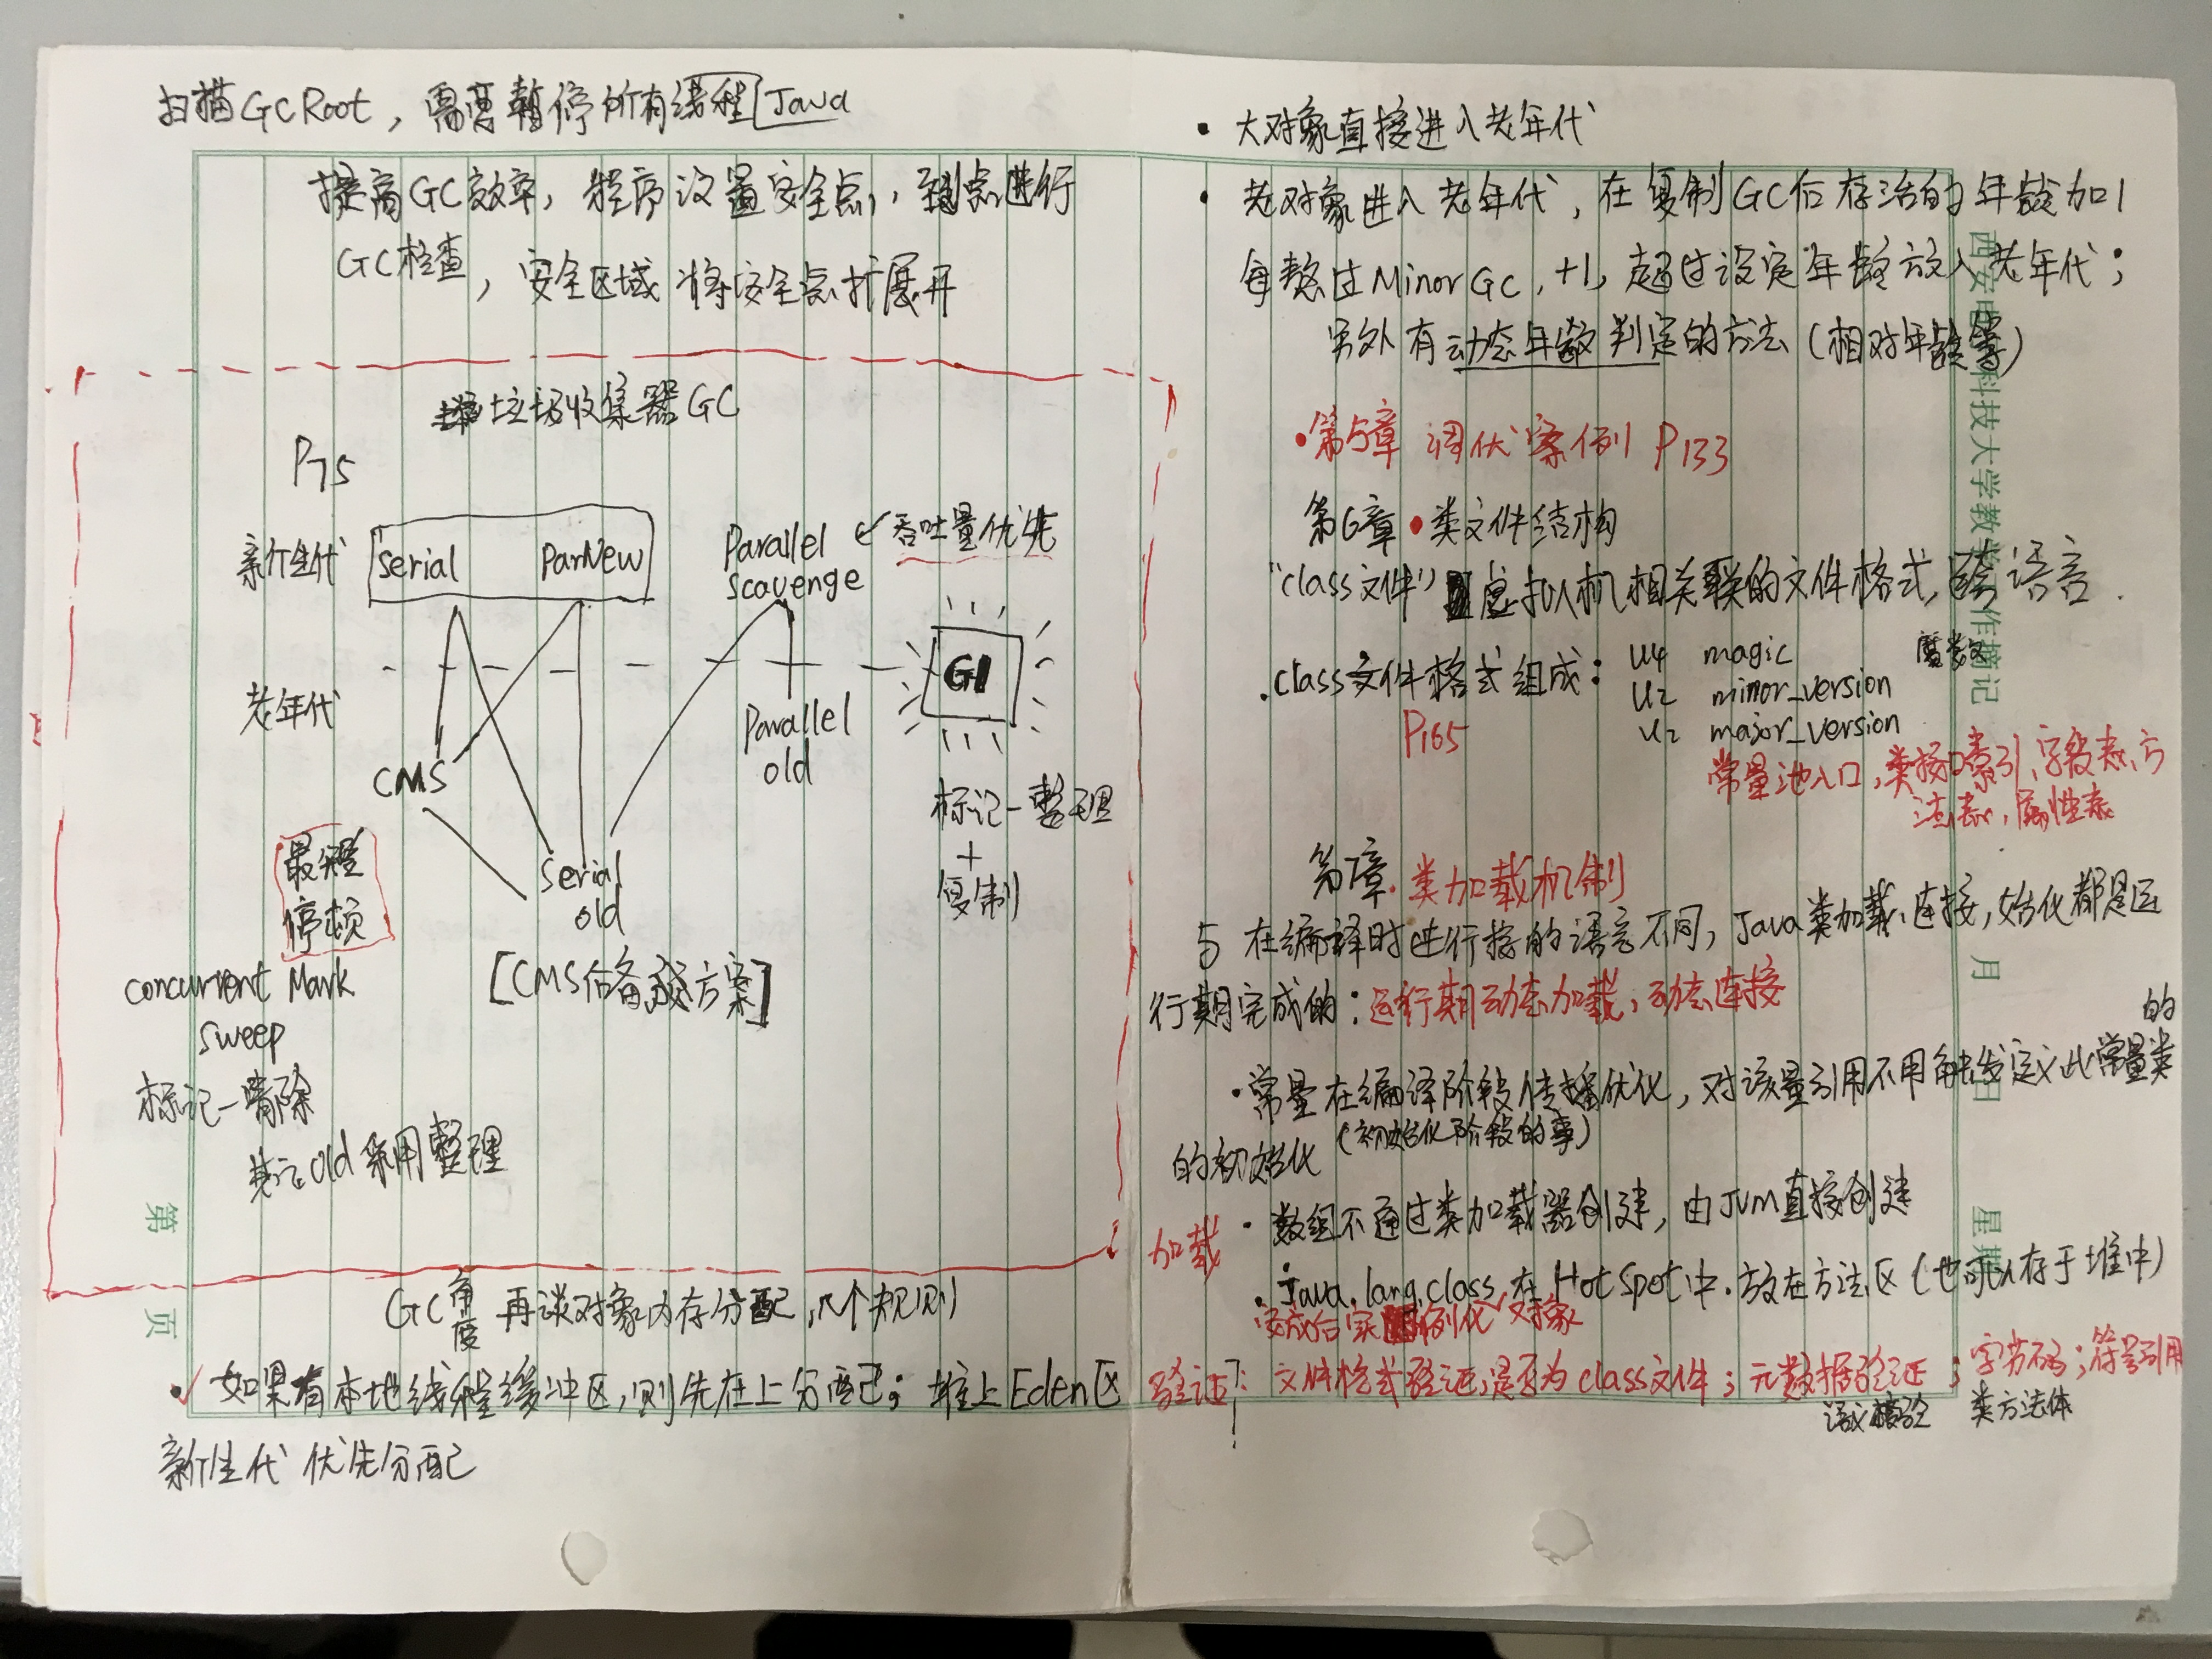 扫描GC Root，需要暂停所有线程 Java
提高GC效率，程序设置安全点，到点进行
GC检查，安全区域 将安全点扩展开
垃圾收集器GC
P75
新生代 Serial ParNew Parallel Scavenge ↙吞吐量优先
老年代
CMS
Serial old
Parallel old
G1
标记-整理
+
复制
最短
停顿
[CMS后备方案]
concurrent Mark
sweep
标记-清除
其它old采用整理
GC角度 再谈对象内存分配，几个规则
✓ 如果有本地线程缓冲区，则先在上分配；堆上Eden区
新生代 优先分配
· 大对象直接进入老年代
· 老对象进入老年代，在复制GC后存活的年龄加1
每熬过Minor GC，+1，超过设定年龄放入老年代；
另外有动态年龄判定的方法（相对年龄等）
· 第5章 调优案例 P133
第6章 · 类文件结构
"class文件" 虚拟机相关联的文件格式，跨语言.
.class文件格式组成： u4 magic 魔数
u2 minor_version
u2 major_version
P165
常量池入口，类接口索引，字段表，方
法表，属性表
第7章. 类加载机制
与在编译时进行连接的语言不同，Java类加载、连接，始化都是运
行期完成的：运行期动态加载，动态连接
· 常量在编译阶段传播优化，对该量引用不用触发定义此常量的类
的初始化 （初始化阶段的事）
加载 · 数组不通过类加载器创建，由JVM直接创建
· Java.lang.class 在HotSpot中，放在方法区（也可以存于堆中）
完成后实例化对象
验证： 文件格式验证，是否为class文件；元数据验证；字节码；符号引用
语义校验 类方法体
西安电子科技大学教学工作摘记
月 日 星期
第 页